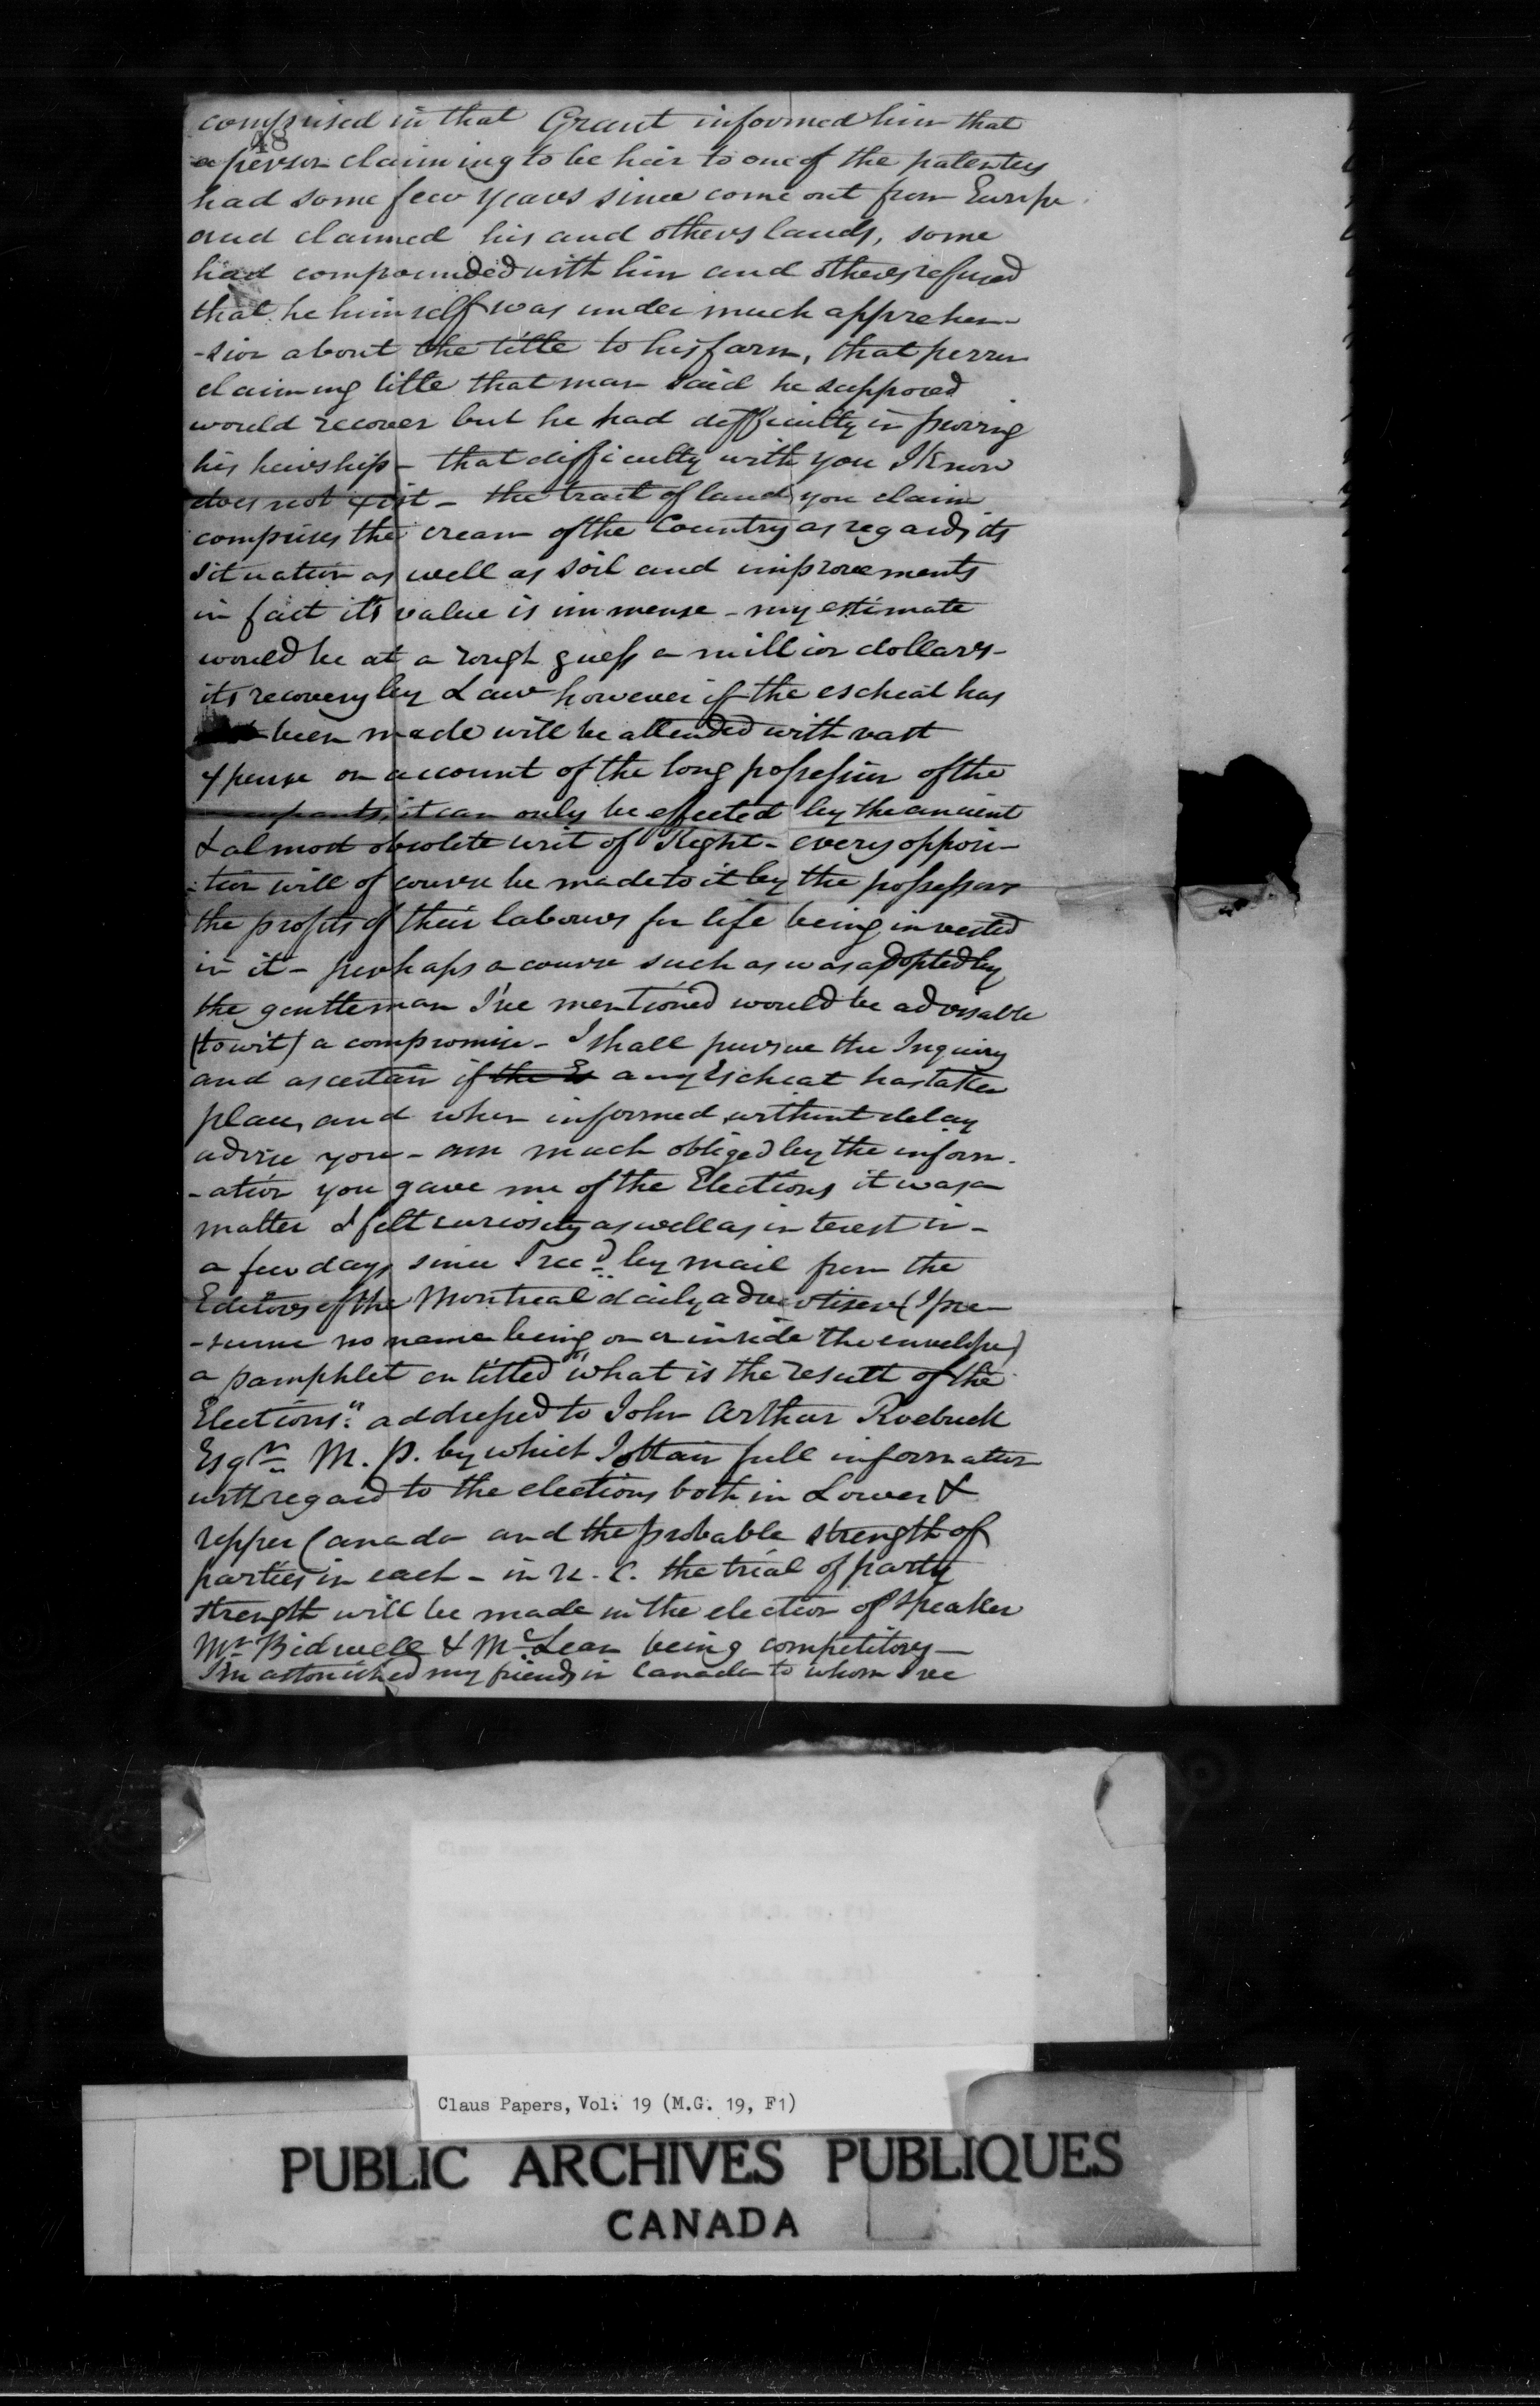 comprised in that Grant informed him that
48
a person claiming to be heir to one of the patentees
had some few years since come out from Europe
and claimed his and others lands, some
had compounded with him and others refused
that he himself was under much apprehen-
-sion about the title to his farm, that person
claiming title that man said he supposed
would recover but he had difficulty in proving
his heirship - that difficulty with you I know
does not exist - the tract of land you claim
comprises the cream of the Country as regards its
situation as well as soil and improvements
in fact its value is immense - my estimate
would be at a rough guess a million dollars -
its recovery by Law however if the escheat has
been made will be attended with vast
expense on account of the long possession of the
it can only be effected by the ancient
& almost obsolete writ of Right - every opposi-
-tion will of course be made to it by the possessors
the profits of their labours for life being invested
in it - perhaps a course such as was adopted by
the gentleman I've mentioned would be advisable
(to wit) a compromise - I shall pursue the Inquiry
and ascertain if the Es any Escheat has taken
place, and when informed without delay
advise you - am much obliged by the inform-
-ation you gave me of the Elections it was a
matter I felt curiosity as well as interest in -
a few days since I recd by mail from the
Editors of the Montreal daily advertiser (I pre-
-sume no name being on or inside the envelope)
a pamphlet entitled "what is the result of the
Elections" addressed to John Arthur Roebuck
Esqr M. P. by which I obtain full information
with regard to the elections both in Lower &
upper Canada and the probable strength of
parties in each - in U. C. the trial of party
strength will be made in the election of Speaker
Mr Bidwell & McLean being competitors -
I'm astonished my friends in Canada to whom I've
Claus Papers, Vol: 19 (M.G. 19, F1)
PUBLIC ARCHIVES PUBLIQUES
CANADA